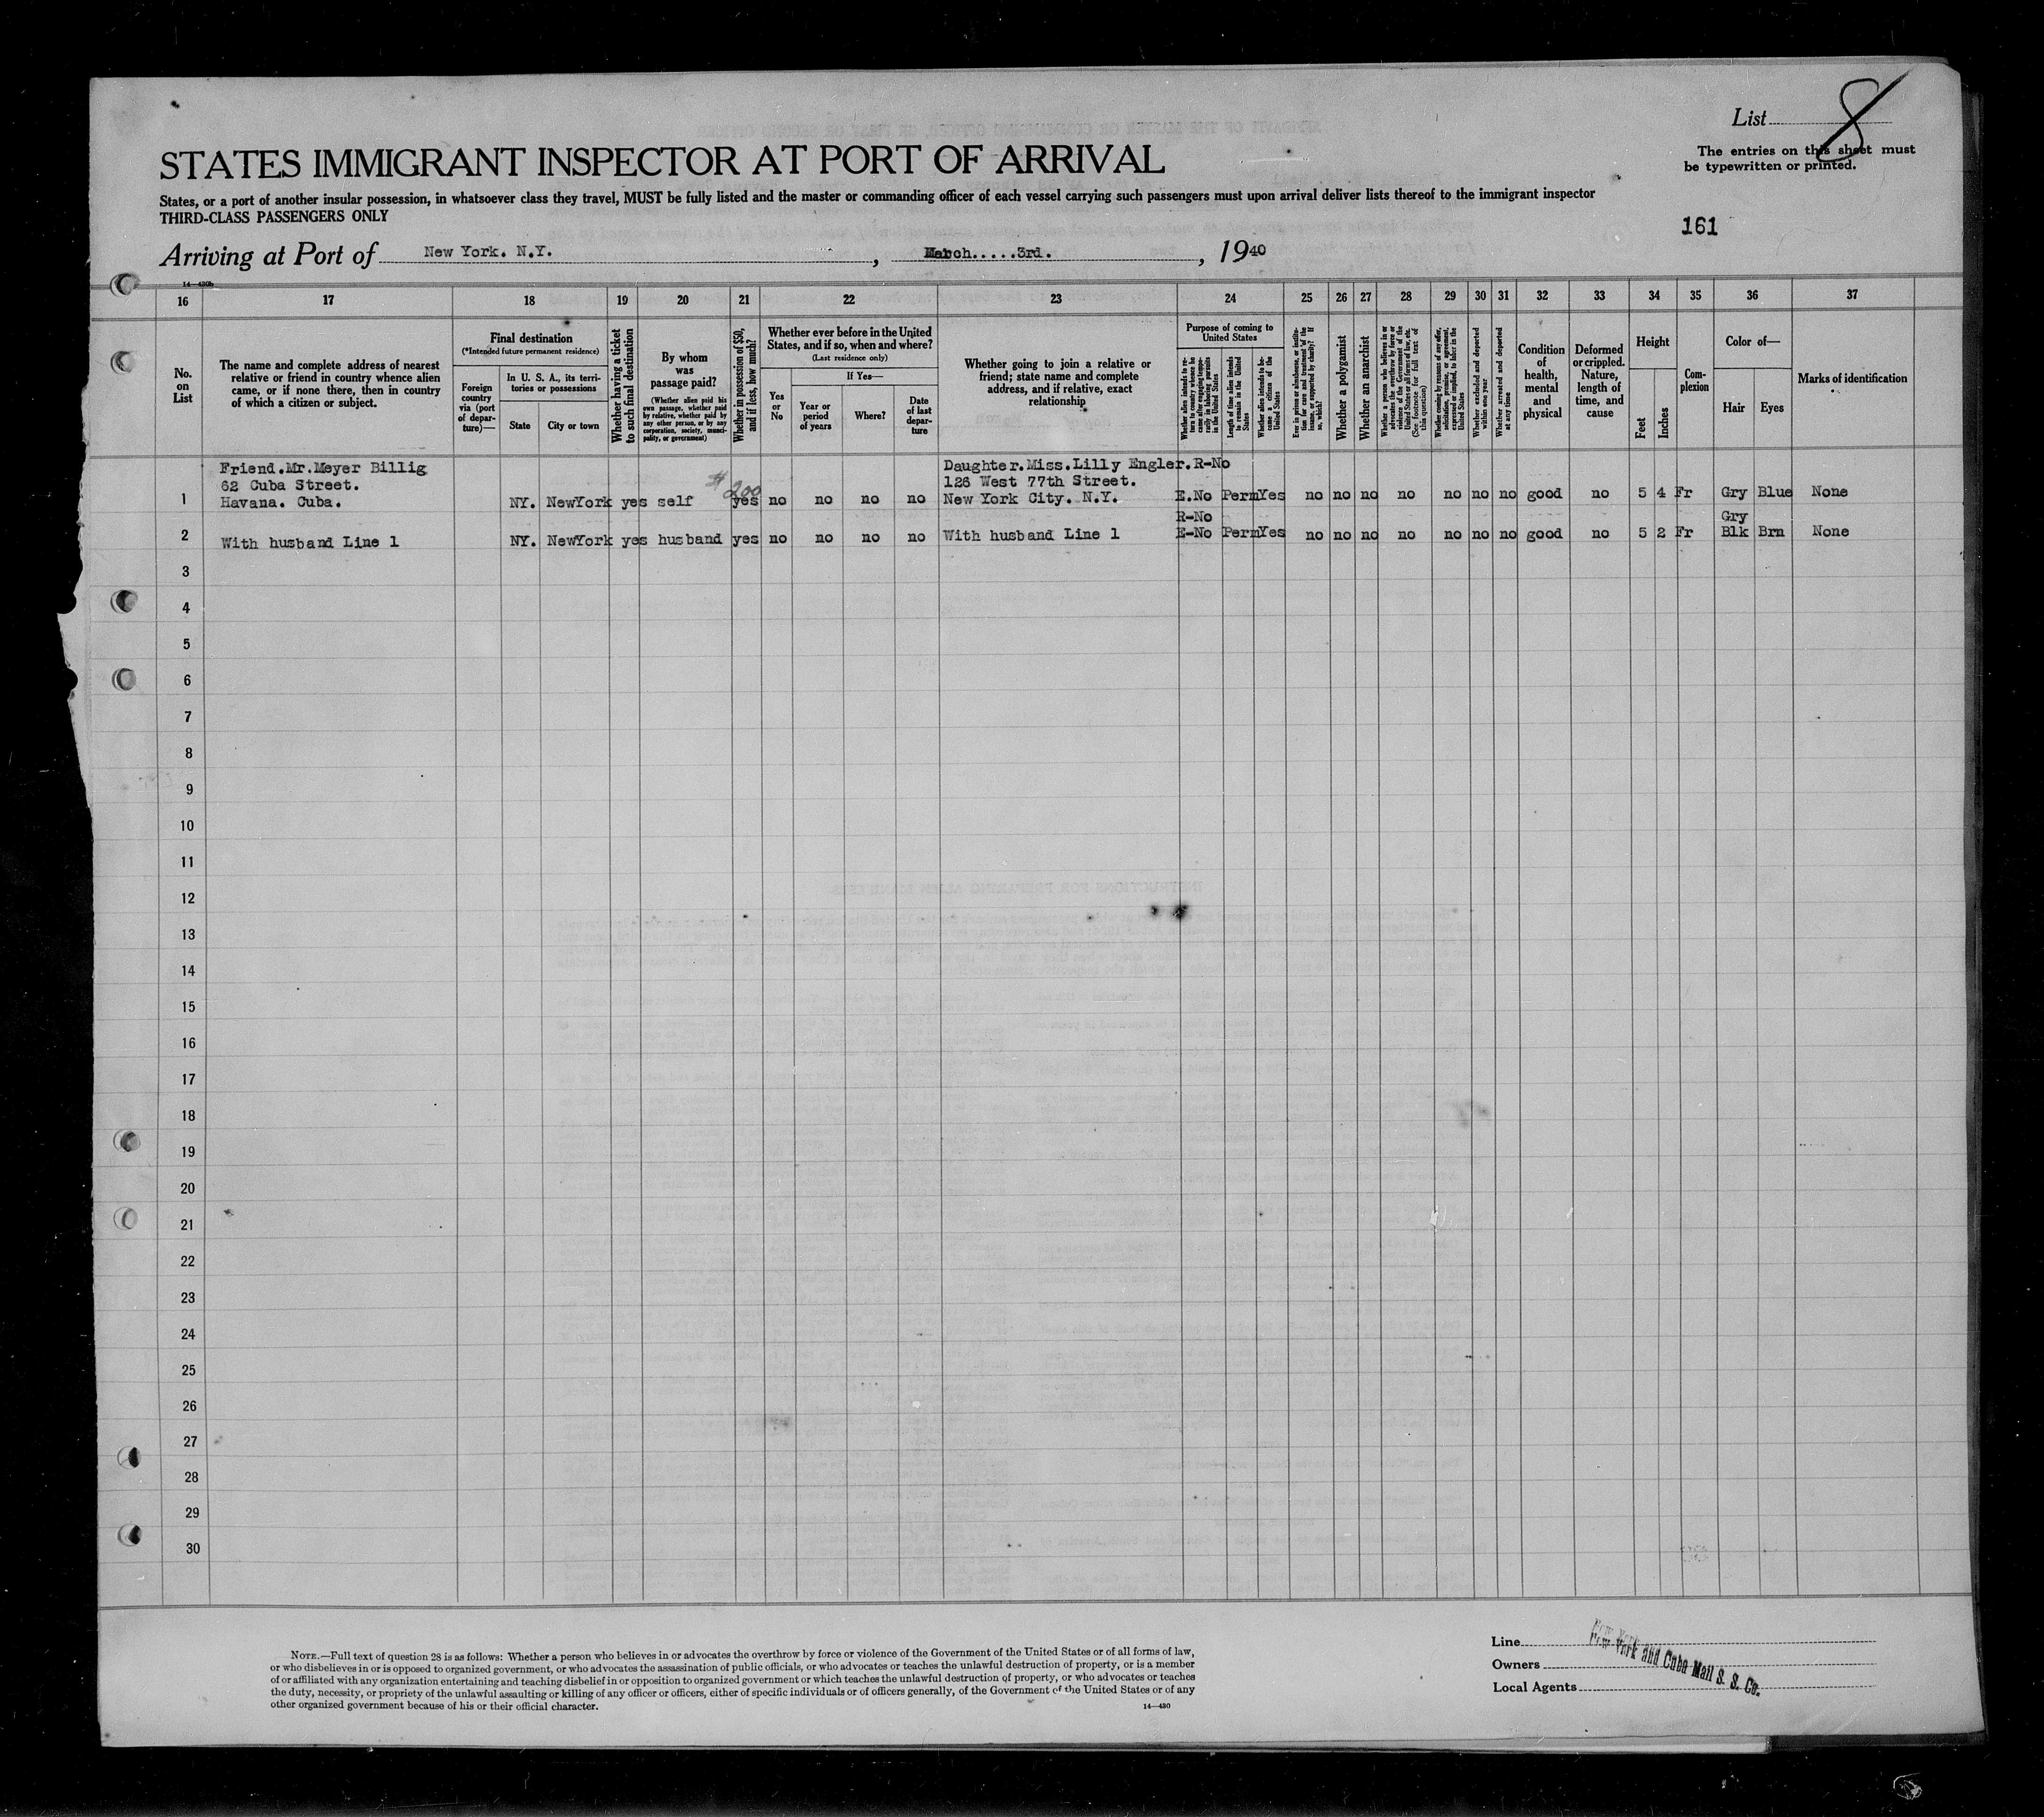 List 8
The entries on this sheet must
be typewritten or printed.
STATES IMMIGRANT INSPECTOR AT PORT OF ARRIVAL
States, or a port of another insular possession, in whatsoever class they travel, MUST be fully listed and the master or commanding officer of each vessel carrying such passengers must upon arrival deliver lists thereof to the immigrant inspector
THIRD-CLASS PASSENGERS ONLY
161
Arriving at Port of New York. N.Y. , March.....3rd. , 1940
14—430b
16 17 18 19 20 21 22 23 24 25 26 27 28 29 30 31 32 33 34 35 36 37
No.
on
List
The name and complete address of nearest
relative or friend in country whence alien
came, or if none there, then in country
of which a citizen or subject.
Final destination
(*Intended future permanent residence)
Foreign
country
via (port
of depar-
ture)—
In U. S. A., its terri-
tories or possessions
State
City or town
Whether having a ticket
to such final destination
By whom
was
passage paid?
(Whether alien paid his
own passage, whether paid
by relative, whether paid by
any other person, or by any
corporation, society, munici-
pality, or government)
Whether in possession of $50,
and if less, how much?
Whether ever before in the United
States, and if so, when and where?
(Last residence only)
Yes
or
No
If Yes—
Year or
period
of years
Where?
Date
of last
depar-
ture
Whether going to join a relative or
friend; state name and complete
address, and if relative, exact
relationship
Purpose of coming to
United States
Whether alien intends to re-
turn to country whence he
came after engaging tempo-
rarily in laboring pursuits
in the United States
Length of time alien intends
to remain in the United
States
Whether alien intends to be-
come a citizen of the
United States
Ever in prison or almshouse, or institu-
tion for care and treatment of the
insane, or supported by charity? If
so, which?
Whether a polygamist
Whether an anarchist
Whether a person who believes in or
advocates the overthrow by force or
violence of the Government of the
United States or all forms of law, etc.
(See footnote for full text of
this question)
Whether coming by reasons of any offer,
solicitation, promise, or agreement,
expressed or implied, to labor in the
United States
Whether excluded and deported
within one year
Whether arrested and deported
at any time
Condition
of
health,
mental
and
physical
Deformed
or crippled.
Nature,
length of
time, and
cause
Height
Feet
Inches
Com-
plexion
Color of—
Hair
Eyes
Marks of identification
Friend.Mr.Meyer Billig Daughter.Miss.Lilly Engler. R-No
62 Cuba Street. $200 126 West 77th Street.
1 Havana. Cuba. NY. NewYork yes self yes no no no no New York City. N.Y. E.No Perm Yes no no no no no no no good no 5 4 Fr Gry Blue None
R-No Gry
2 With husband Line 1 NY. NewYork yes husband yes no no no no With husband Line 1 E-No Perm Yes no no no no no no no good no 5 2 Fr Blk Brn None
3
4
5
6
7
8
9
10
11
12
13
14
15
16
17
18
19
20
21
22
23
24
25
26
27
28
29
30
NOTE.—Full text of question 28 is as follows: Whether a person who believes in or advocates the overthrow by force or violence of the Government of the United States or of all forms of law,
or who disbelieves in or is opposed to organized government, or who advocates the assassination of public officials, or who advocates or teaches the unlawful destruction of property, or is a member
of or affiliated with any organization entertaining and teaching disbelief in or opposition to organized government or which teaches the unlawful destruction of property, or who advocates or teaches
the duty, necessity, or propriety of the unlawful assaulting or killing of any officer or officers, either of specific individuals or of officers generally, of the Government of the United States or of any
other organized government because of his or their official character.
14—430
Line
Owners
Local Agents
New York and Cuba Mail S. S. Co.